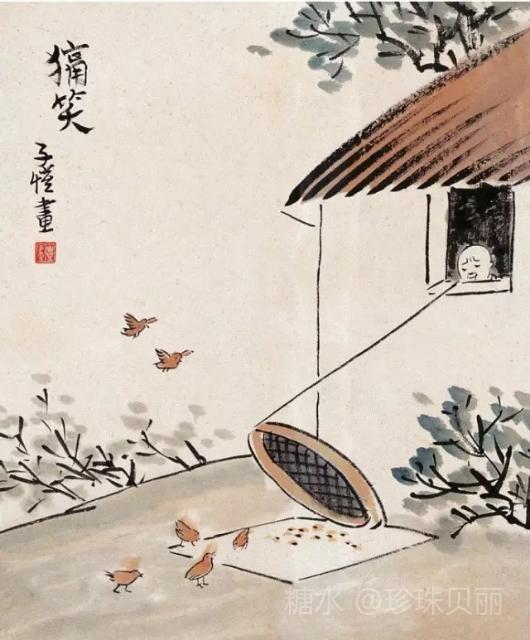 笑
子愷畫
糖水 @珍珠贝丽